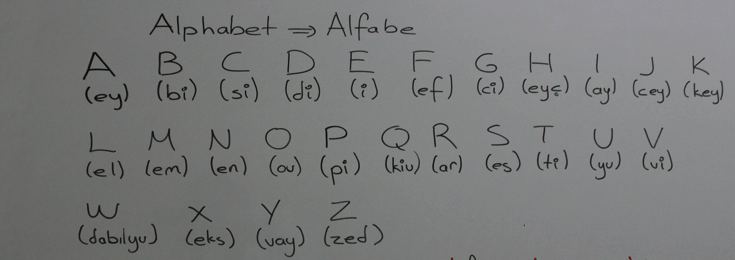 Alphabet ⇒ Alfabe
A B C D E F G H I J K
(ey) (bi) (si) (di) (i) (ef) (ci) (eyç) (ay) (cey) (key)
L M N O P Q R S T U V
(el) (em) (en) (ou) (pi) (kiu) (ar) (es) (ti) (yu) (vi)
W X Y Z
(dabılyu) (eks) (vay) (zed)